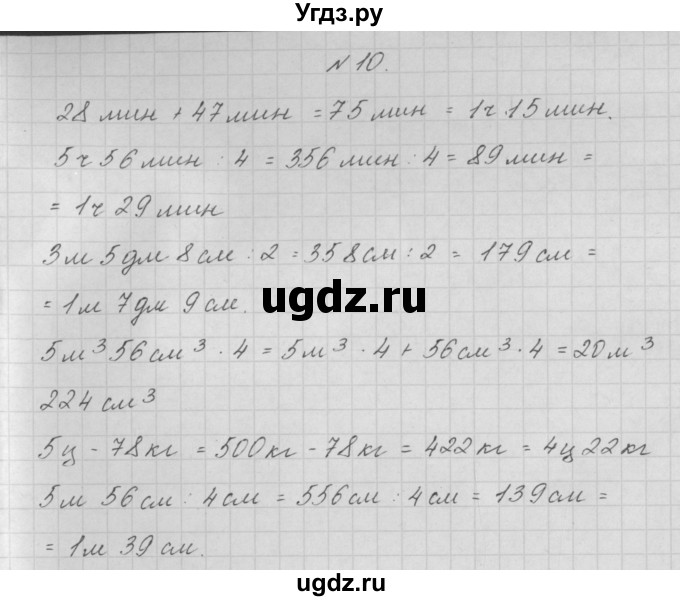 Угдз.ру
N 10.
28 мин + 47 мин = 75 мин = 1ч 15 мин.
5ч 56 мин : 4 = 356 мин : 4 = 89 мин =
= 1ч 29 мин
3м 5дм 8см : 2 = 358см : 2 = 179см =
= 1м 7дм 9см.
ugdz.ru
5м³ 56см³ · 4 = 5м³ · 4 + 56см³ · 4 = 20м³
224см³
5ц - 78кг = 500кг - 78кг = 422кг = 4ц 22кг
5м 56см : 4см = 556см : 4см = 139см =
= 1м 39см.
ugdz.ru